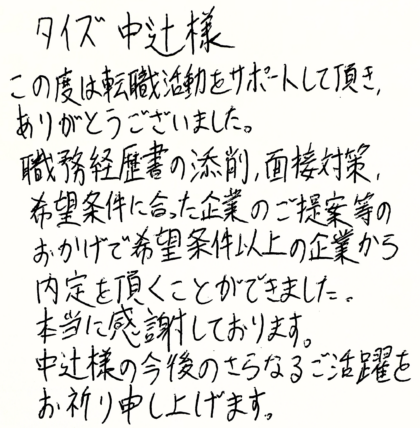 タイズ 中辻様
この度は転職活動をサポートして頂き,
ありがとうございました。
職務経歴書の添削,面接対策,
希望条件に合った企業のご提案等の
おかげで希望条件以上の企業から
内定を頂くことができました。
本当に感謝しております。
中辻様の今後のさらなるご活躍を
お祈り申し上げます。